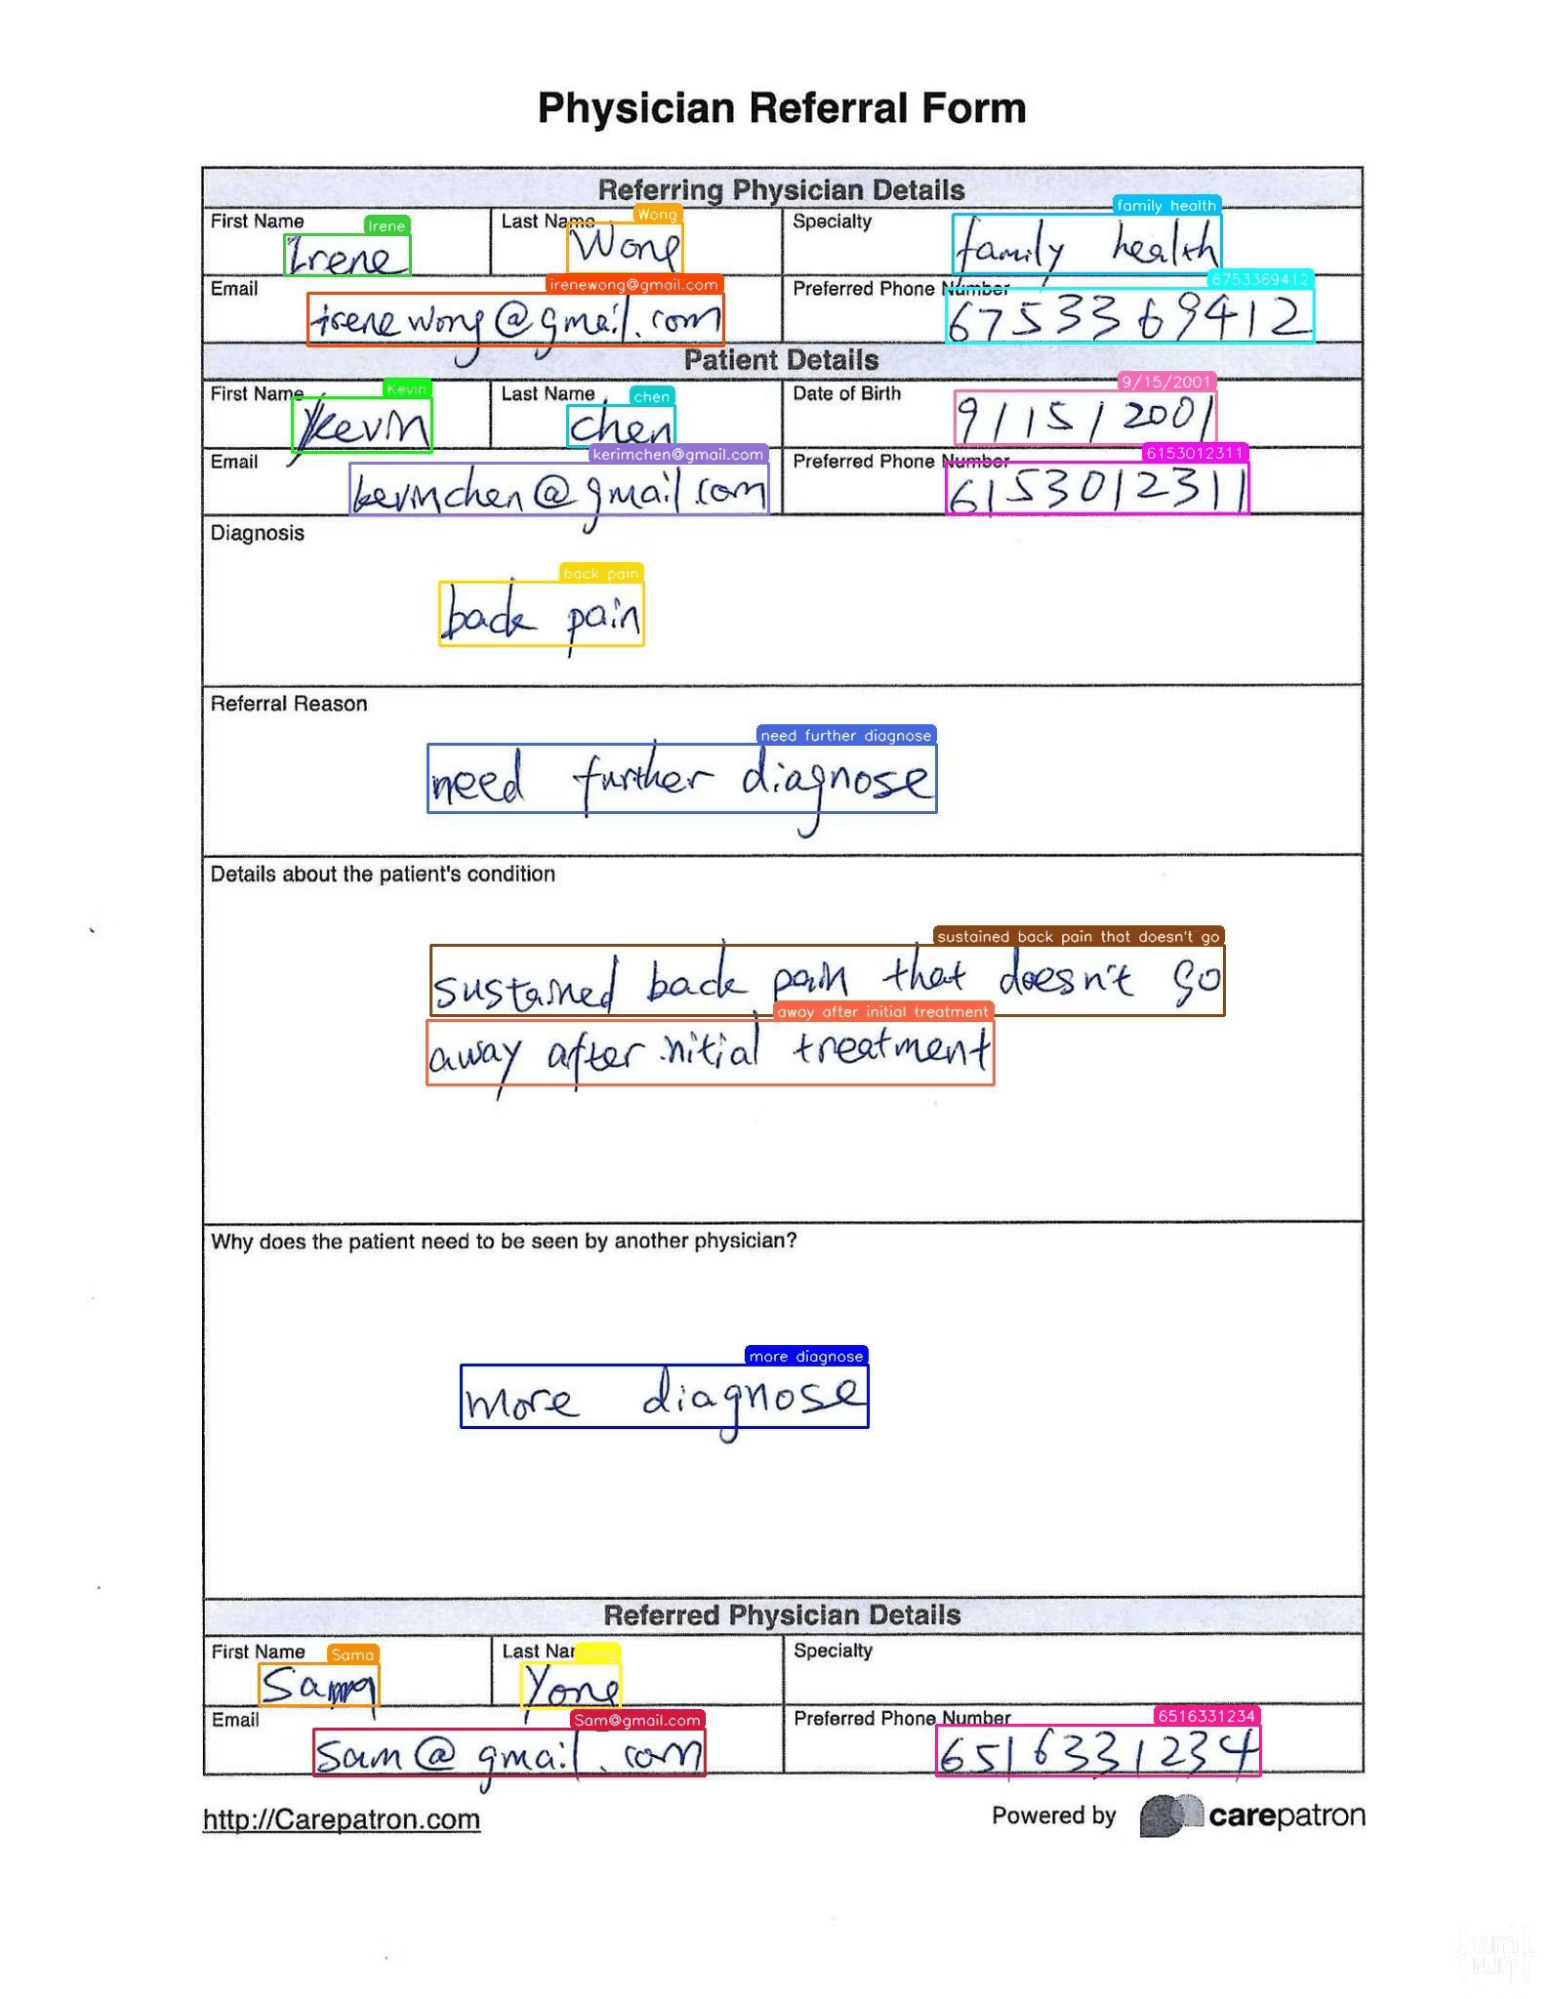 Physician Referral Form
Referring Physician Details
First Name Irene
Irene
Last Name Wong
Wong
Specialty family health
family health
Email irenewong@gmail.com
irenewong@gmail.com
Preferred Phone Number 6753369412
6753369412
Patient Details
First Name Kevin
Kevin
Last Name chen
chen
Date of Birth 9/15/2001
9/15/2001
Email kerimchen@gmail.com
kevinchen@gmail.com
Preferred Phone Number 6153012311
6153012311
Diagnosis
back pain
back pain
Referral Reason
need further diagnose
need further diagnose
Details about the patient's condition
sustained back pain that doesn't go
sustained back pain that doesn't go
away after initial treatment
away after initial treatment
Why does the patient need to be seen by another physician?
more diagnose
more diagnose
Referred Physician Details
First Name Sama
Last Name
Yong
Specialty
Email Sam@gmail.com
Sam@gmail.com
Preferred Phone Number 6516331234
6516331234
http://Carepatron.com
Powered by carepatron